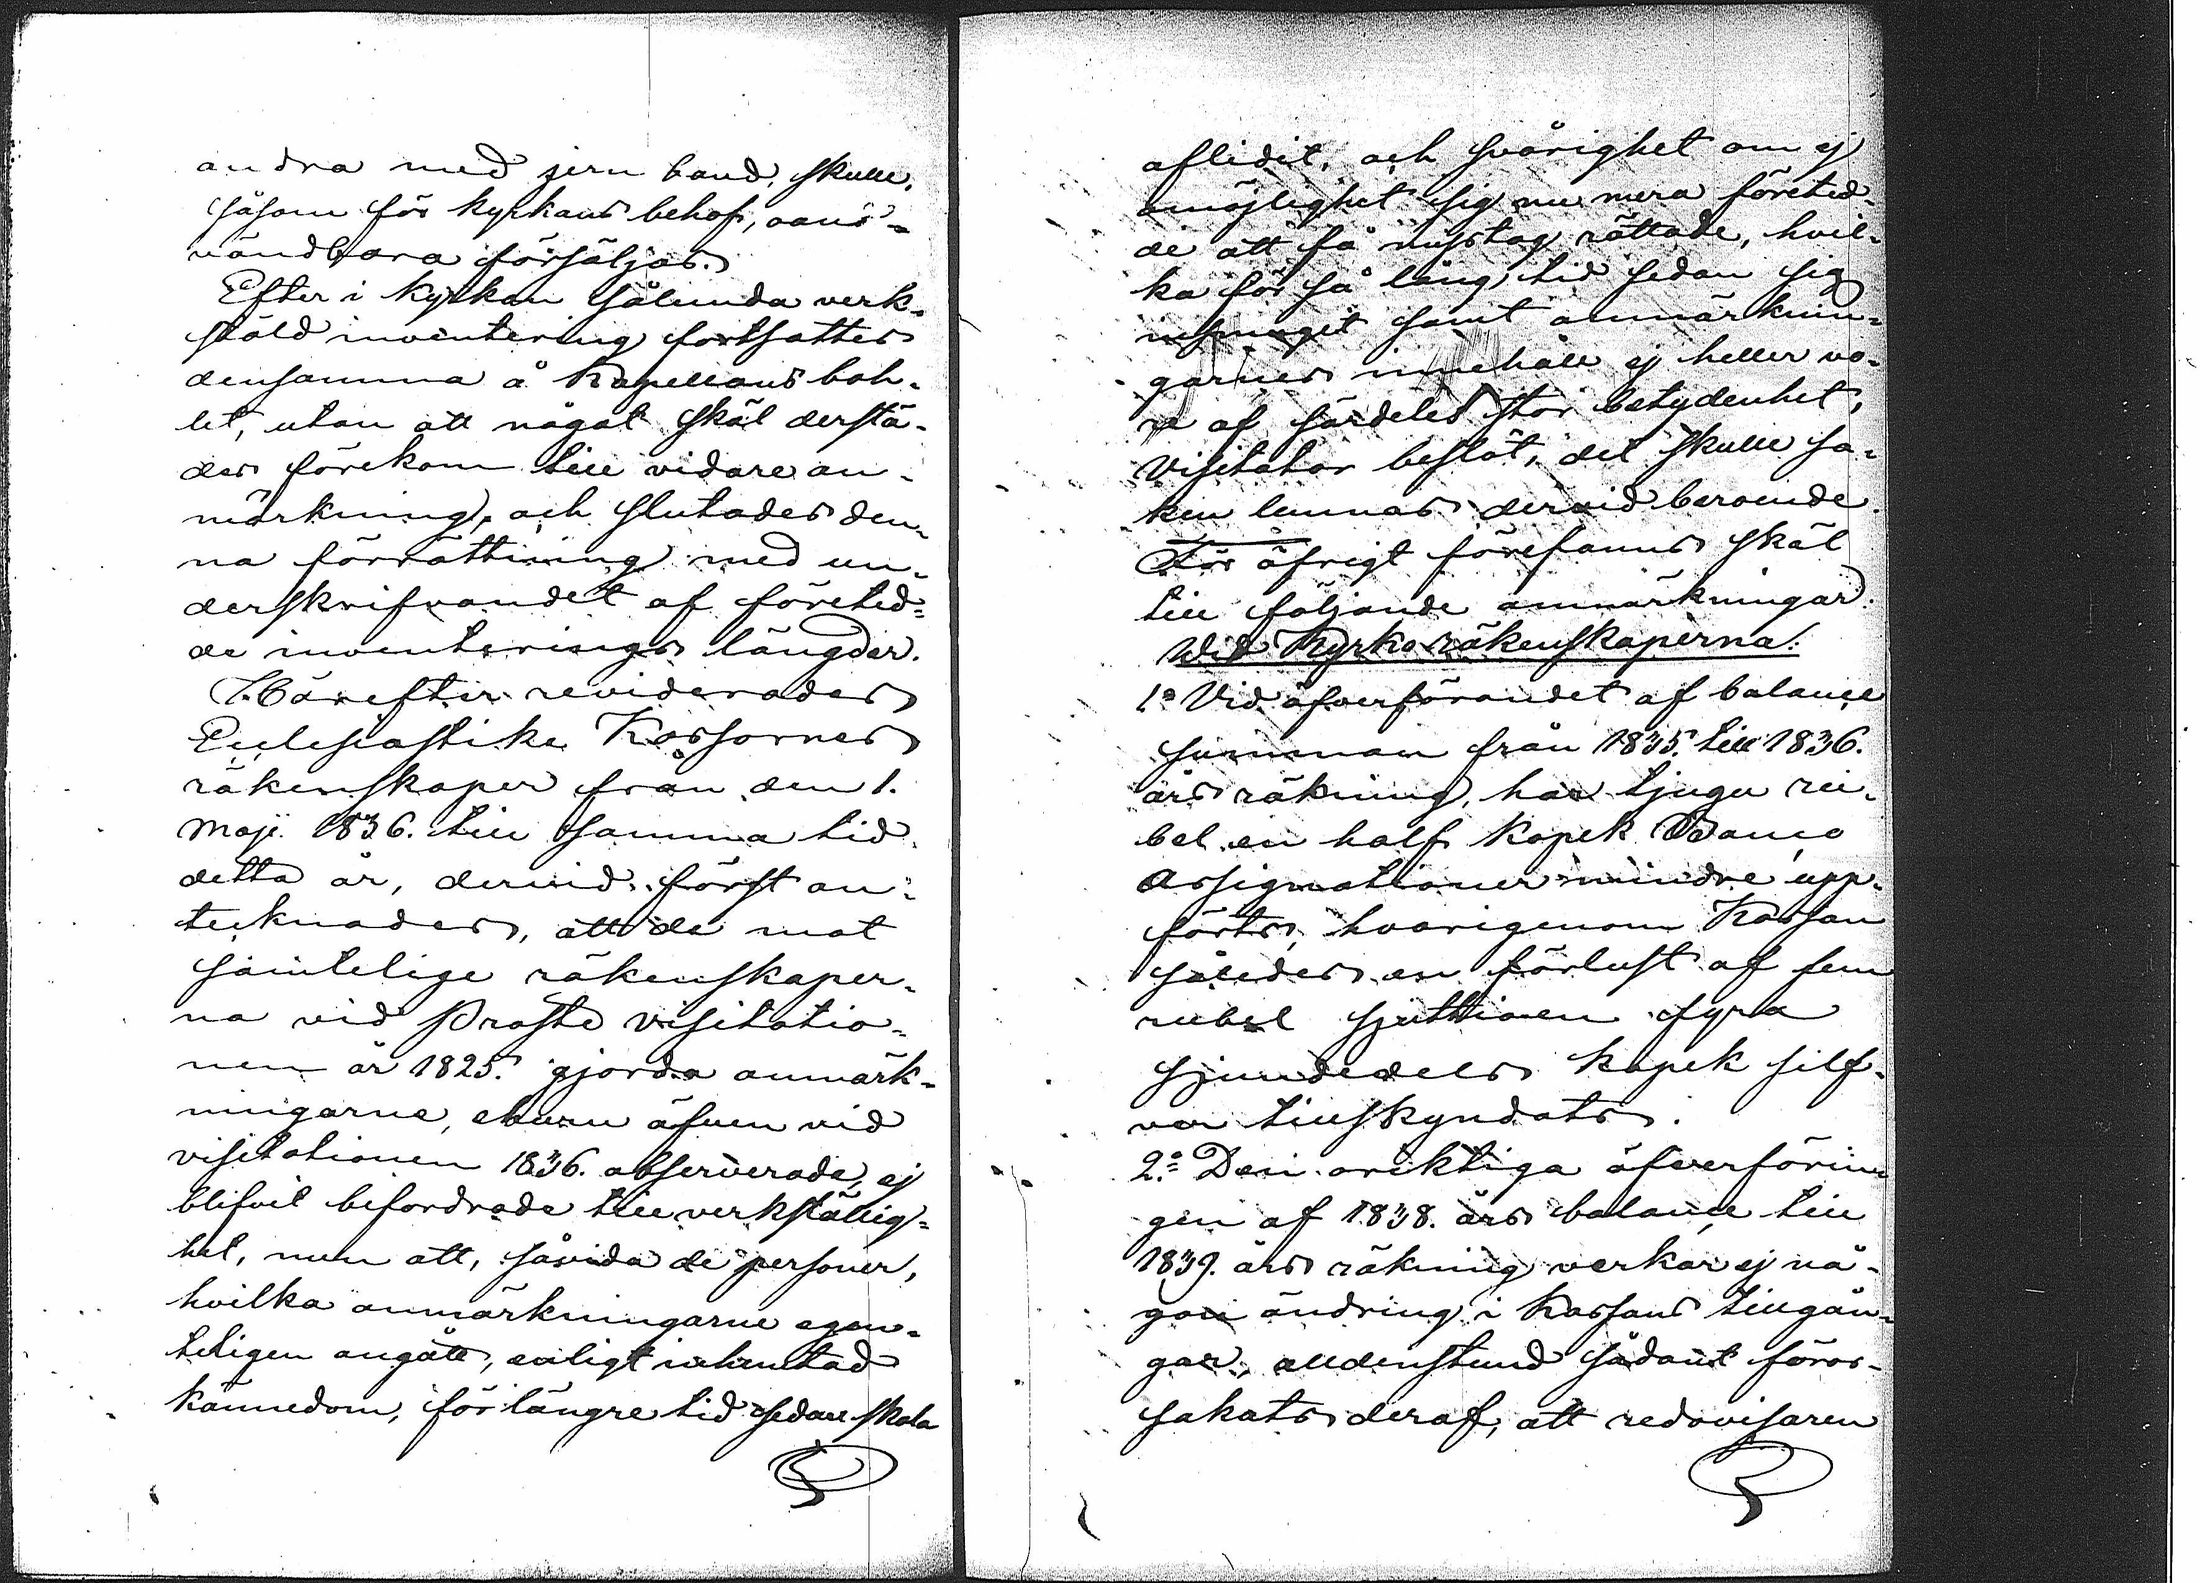 andra med jern band, skulle,
såsom för kyrkans behof, oanv=
vändbara försäljas.
Efter i kyrkan sålunda verk=
stäld inventering fortsattes
densamma å Kapellans bohl=
let, utan att något skäl derstä=
des förekom till vidare an=
märkning, och slutades den=
na förrättning med un=
derskrifvandet af företed=
de inventerings längder.
Härefter reviderades
Ecclesiastike Kassornes
räkenskaper från den 1.
Maji 1836. till samma tid
detta år, dervid först an=
tecknades, att de mot
samtelige räkenskaper=
na vid Prosts visitatio=
nen år 1825. gjorda anmärk=
ningarne, ehuru äfven vid
visitationen 1836. observerade, ej
blifvit befordrade till verkställig=
het, men att, såvida de personer,
hvilka anmärkningarne egen=
teligen angått, enligt inhemtad
kännedom, för längre tid sedan skola
aflidit, och svårighet om ej
omöjlighet sig nu mera företed=
de att få misstag rättade, hvil=
ka för så lång tid sedan sig
insmugit samt anmärknin=
garnes innehåll ej heller vo=
re af särdeles stor betydenhet,
Visitator beslöt, det skulle sa=
ken lemnas dervid beroende.
För öfrigt förefanns skäl
till följande anmärkningar.
Wid Kyrko räkenskaperna.
1:o Vid öfverförandet af balance
summan från 1835. till 1836.
års räkning, har tjugu ru=
bel en half kopek Banco
Assignationer mindre upp=
förts, hvarigenom Kassan
således en förlust af fem
rubel sjuttioen fyra
sjundedels kopek silf=
ver tillskyndats.
2:o Den oriktiga öfverförin=
gen af 1838. års balance till
1839. års räkning verkar ej nå=
gon ändring i Kassans tillgån=
gar, alldenstund sådant föror=
sakats deraf, att redovisaren